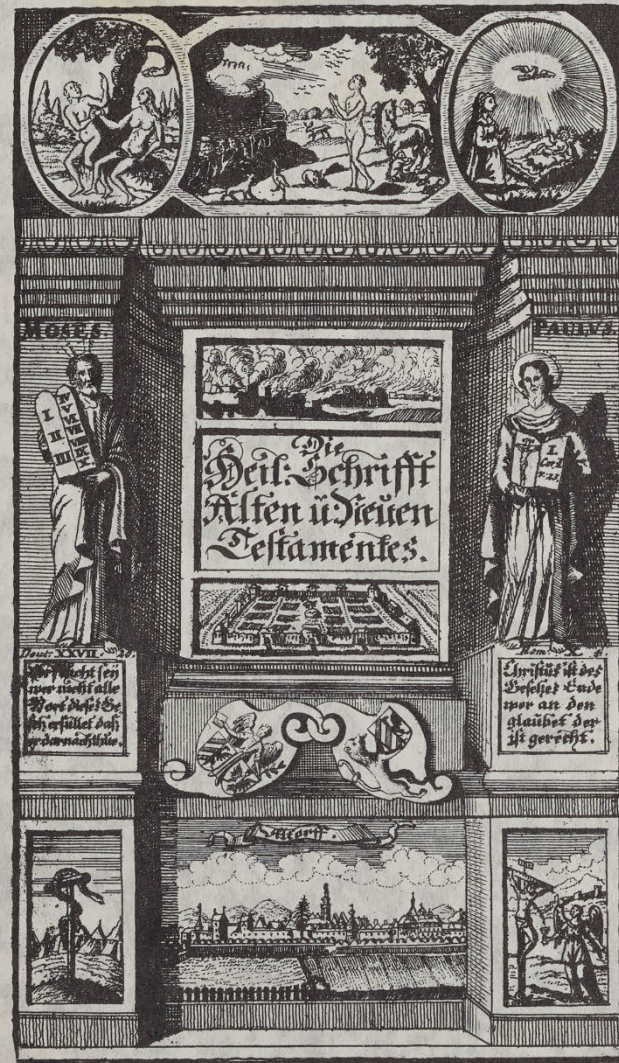 MOSES
PAULVS.
I II III IV V VI VII VIII IX X
I. Cor. 2
Die
Heil: Schrifft
Alten ū Neuen
Testamentes.
Deut: XXVII. 26.
Verflucht seÿ
wer nicht alle
Wort dieses Ge
setz erfüllet daß
er darnach thue.
Rom: X 4.
Christus ist des
Gesetzes Ende
wer an den
glaubet der
ist gerecht.
Altorff